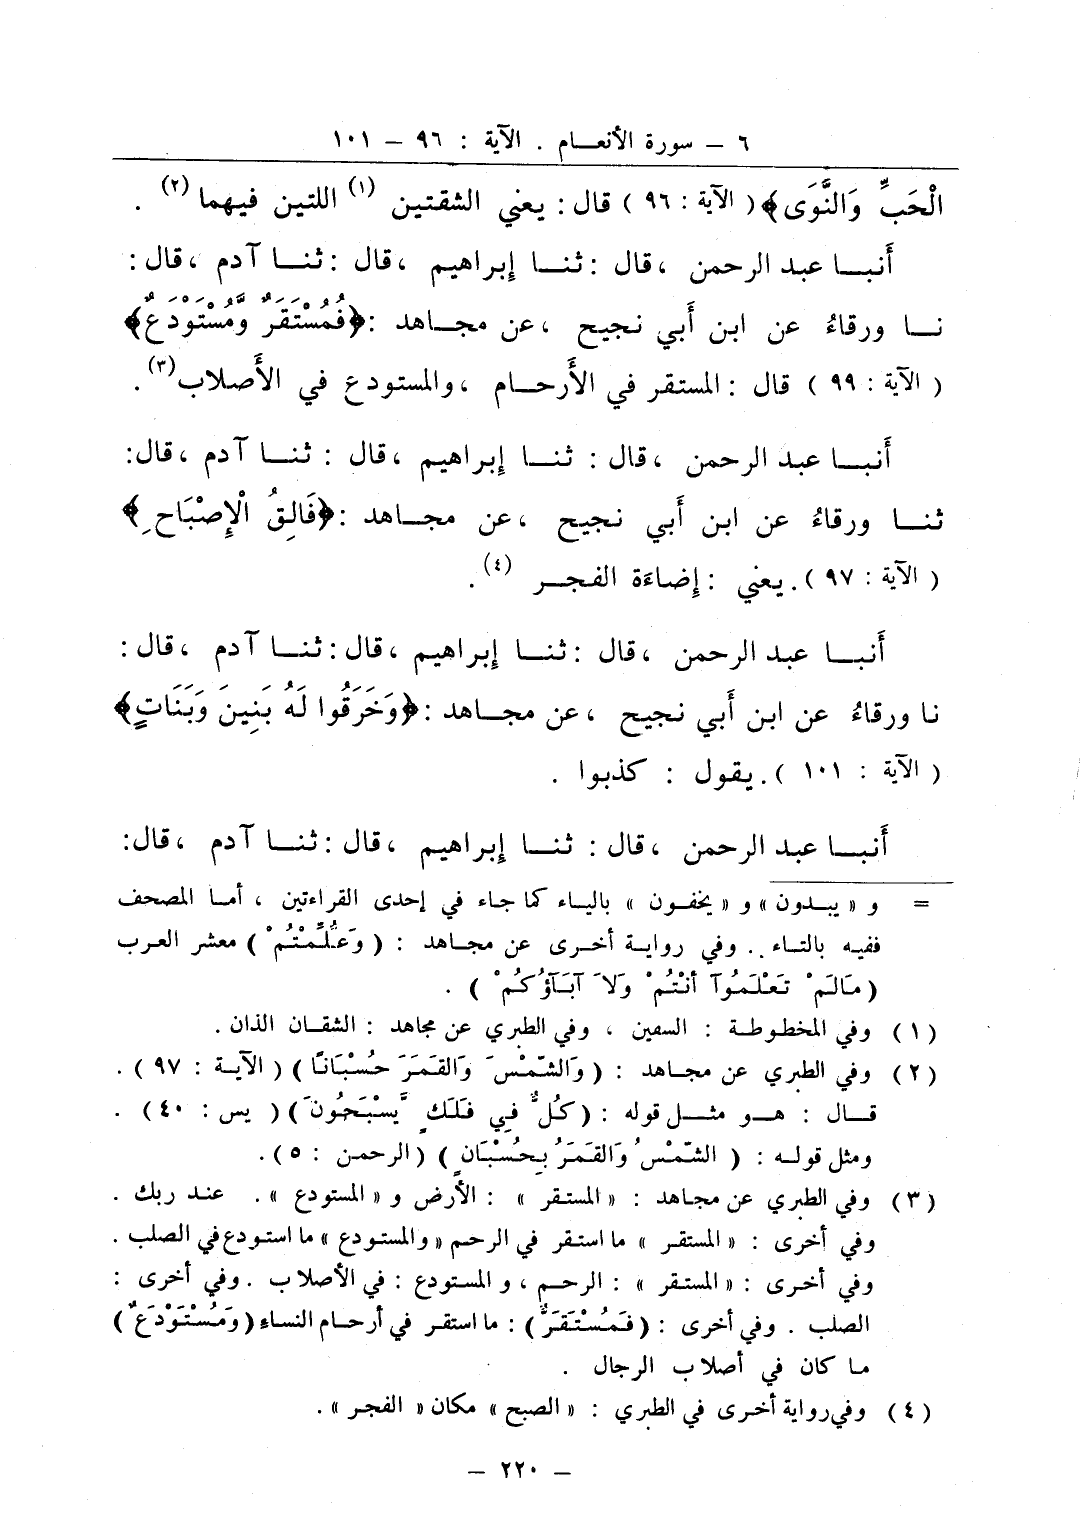 ٦ – سورة الأنعــام . الآية : ٩٦ – ١٠١
الْحَبِّ وَالنَّوَى﴾ ( الآية : ٩٦ ) قال : يعني الشقتين (١) اللتين فيهما (٢) .
أَنبــا عبد الرحمن ، قال : ثنــا إبراهيم ، قال : ثنــا آدم ، قال :
نــا ورقاءُ عن ابن أَبي نجيح ، عن مجــاهد : ﴿فَمُسْتَقَرٌ وَّمُسْتَوْدَعٌ﴾
( الآية : ٩٩ ) قال : المستقر في الأَرحــام ، والمستودع في الأَصلاب (٣) .
أَنبــا عبد الرحمن ، قال : ثنــا إبراهيم ، قال : ثنــا آدم ، قال :
ثنــا ورقاءُ عن ابن أَبي نجيح ، عن مجــاهد : ﴿فَالِقُ الْإِصْبَاحِ﴾
( الآية : ٩٧ ) . يعني : إِضاءَة الفجــر (٤) .
أَنبــا عبد الرحمن ، قال : ثنــا إبراهيم ، قال : ثنــا آدم ، قال :
نا ورقاءُ عن ابن أَبي نجيح ، عن مجــاهد : ﴿وَخَرَقُوا لَهُ بَنِينَ وَبَنَاتٍ﴾
( الآية : ١٠١ ) . يقول : كذبوا .
أَنبــا عبد الرحمن ، قال : ثنــا إبراهيم ، قال : ثنــا آدم ، قال :
= و « يبدون » و « يخفون » بالياء كما جاء في إحدى القراءتين ، أمــا المصحف
ففيه بالتــاء .. وفي روايــة أخــرى عن مجــاهد : ( وَعُلِّمْتُمْ ) معشر العرب
( مَالَمْ تَعْلَمُوآ أنْتُمْ وَلَا آبَآؤُكُمْ ) .
(١) وفي المخطوطــة : السفين ، وفي الطبري عن مجاهد : الشقــان الذان .
(٢) وفي الطبري عن مجــاهد : ( وَالشَّمْسَ وَالقَمَرَ حُسْبَانًا ) ( الآيــة : ٩٧ ) .
قــال : هــو مثــل قوله : ( كُلٌّ فِي فَلَكٍ يَّسْبَحُونَ ) ( يس : ٤٠ ) .
ومثل قولــه : ( الشَّمْسُ وَالقَمَرُ بِحُسْبَانٍ ) ( الرحمن : ٥ ) .
(٣) وفي الطبري عن مجــاهد : « المستقر » : الأرض و « المستودع » . عنــد ربك .
وفي أخــرى : « المستقــر » ما استقر في الرحم « والمستودع » ما استودع في الصلب .
وفي أخــرى : « المستقر » : الرحــم ، و المستودع : في الأصلاب . وفي أخرى :
الصلب . وفي أخرى : ( فَمُسْتَقَرٌّ ) : ما استقر في أرحــام النساء ( وَمُسْتَوْدَعٌ )
مــا كان في أصلاب الرجال .
(٤) وفي رواية أخــرى في الطبري : « الصبح » مكان « الفجــر » .
– ٢٢٠ –